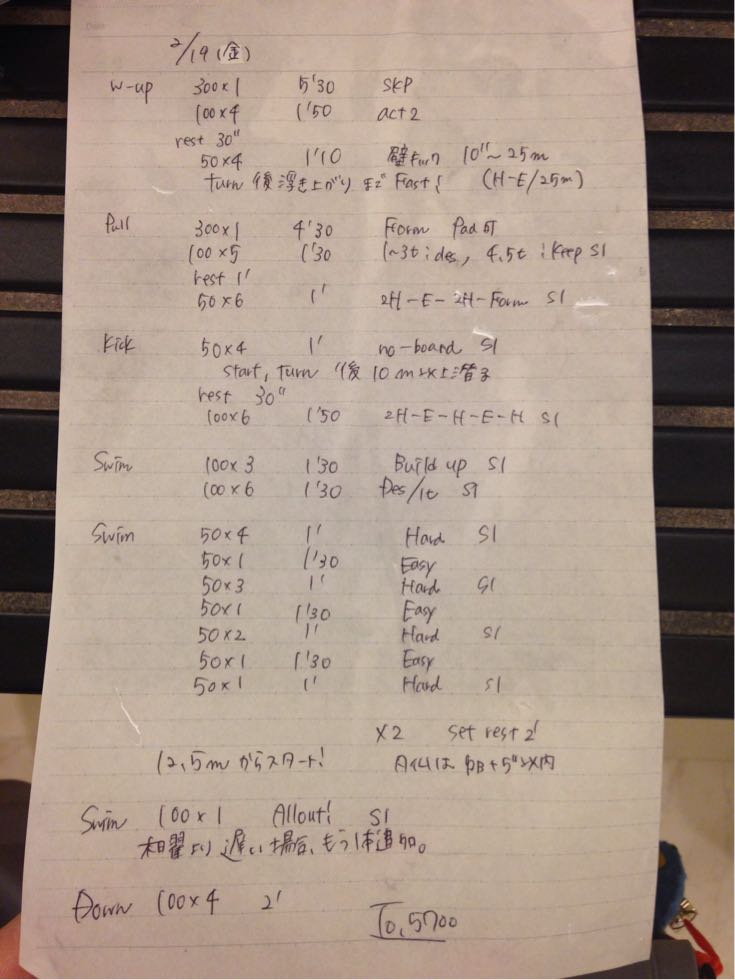 2/19 (金)
W-up 300×1 5'30 SKP
100×4 1'50 act2
rest 30"
50×4 1'10 壁キック 10"~25m
turn 後浮き上がりまで Fast! (H-E/25m)
Pull 300×1 4'30 Form Pad 可
100×5 1'30 1~3t:des, 4,5t:Keep S1
rest 1'
50×6 1' 2H-E-2H-Form S1
Kick 50×4 1' no-board S1
start, turn 後 10m以上潜る
rest 30"
100×6 1'50 2H-E-H-E-H S1
Swim 100×3 1'30 Build up S1
100×6 1'30 Des/1t S1
Swim 50×4 1' Hard S1
50×1 1'30 Easy
50×3 1' Hard S1
50×1 1'30 Easy
50×2 1' Hard S1
50×1 1'30 Easy
50×1 1' Hard S1
×2 set rest 2'
12,5mからスタート! タイムは PB+5"以内
Swim 100×1 Allout! S1
より遅い場合、もう1本追加。
Down 100×4 2'
5700